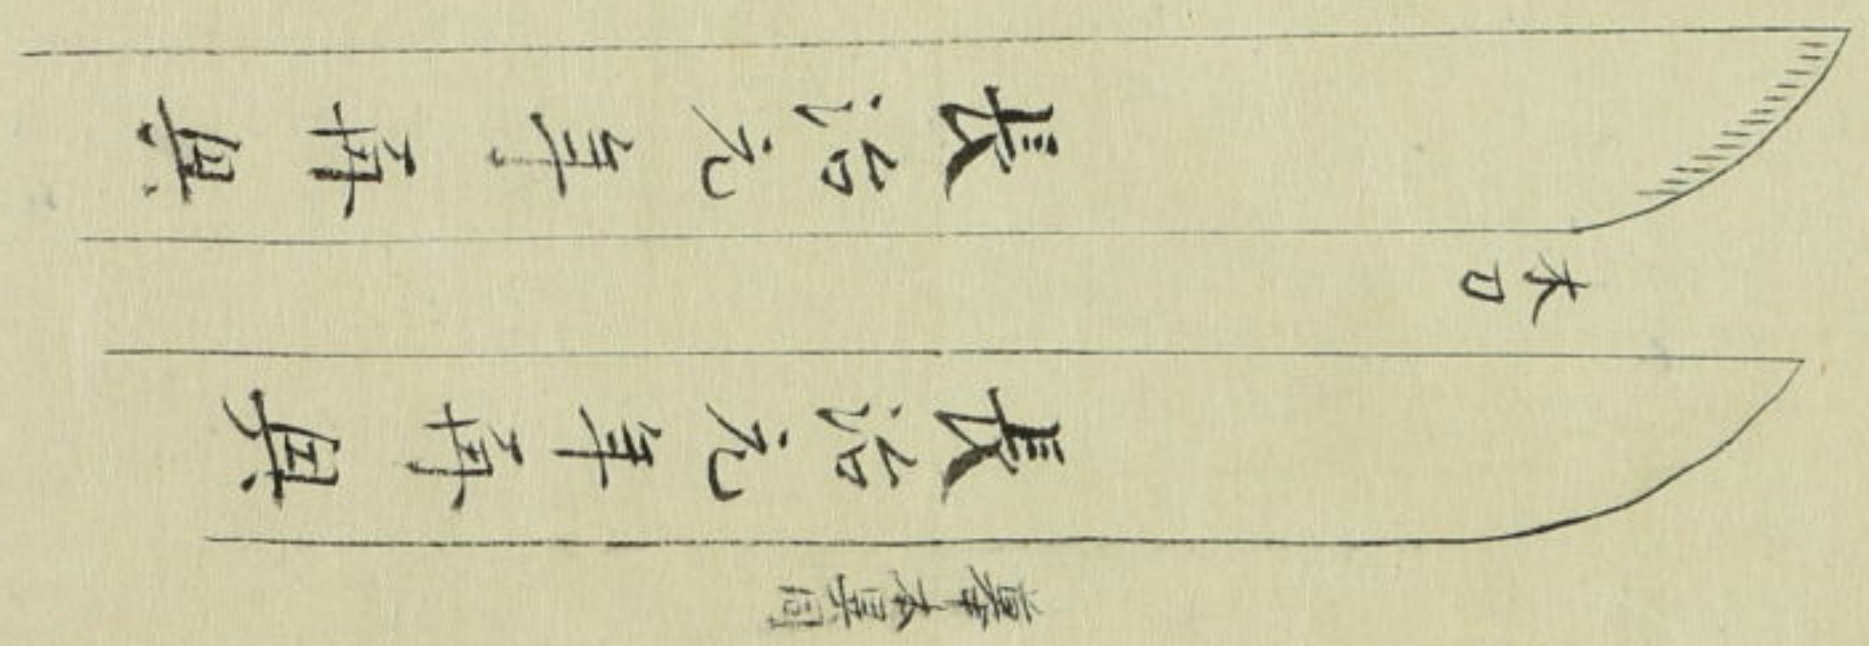 本異同
長治元年再興
木口
長治元年再興